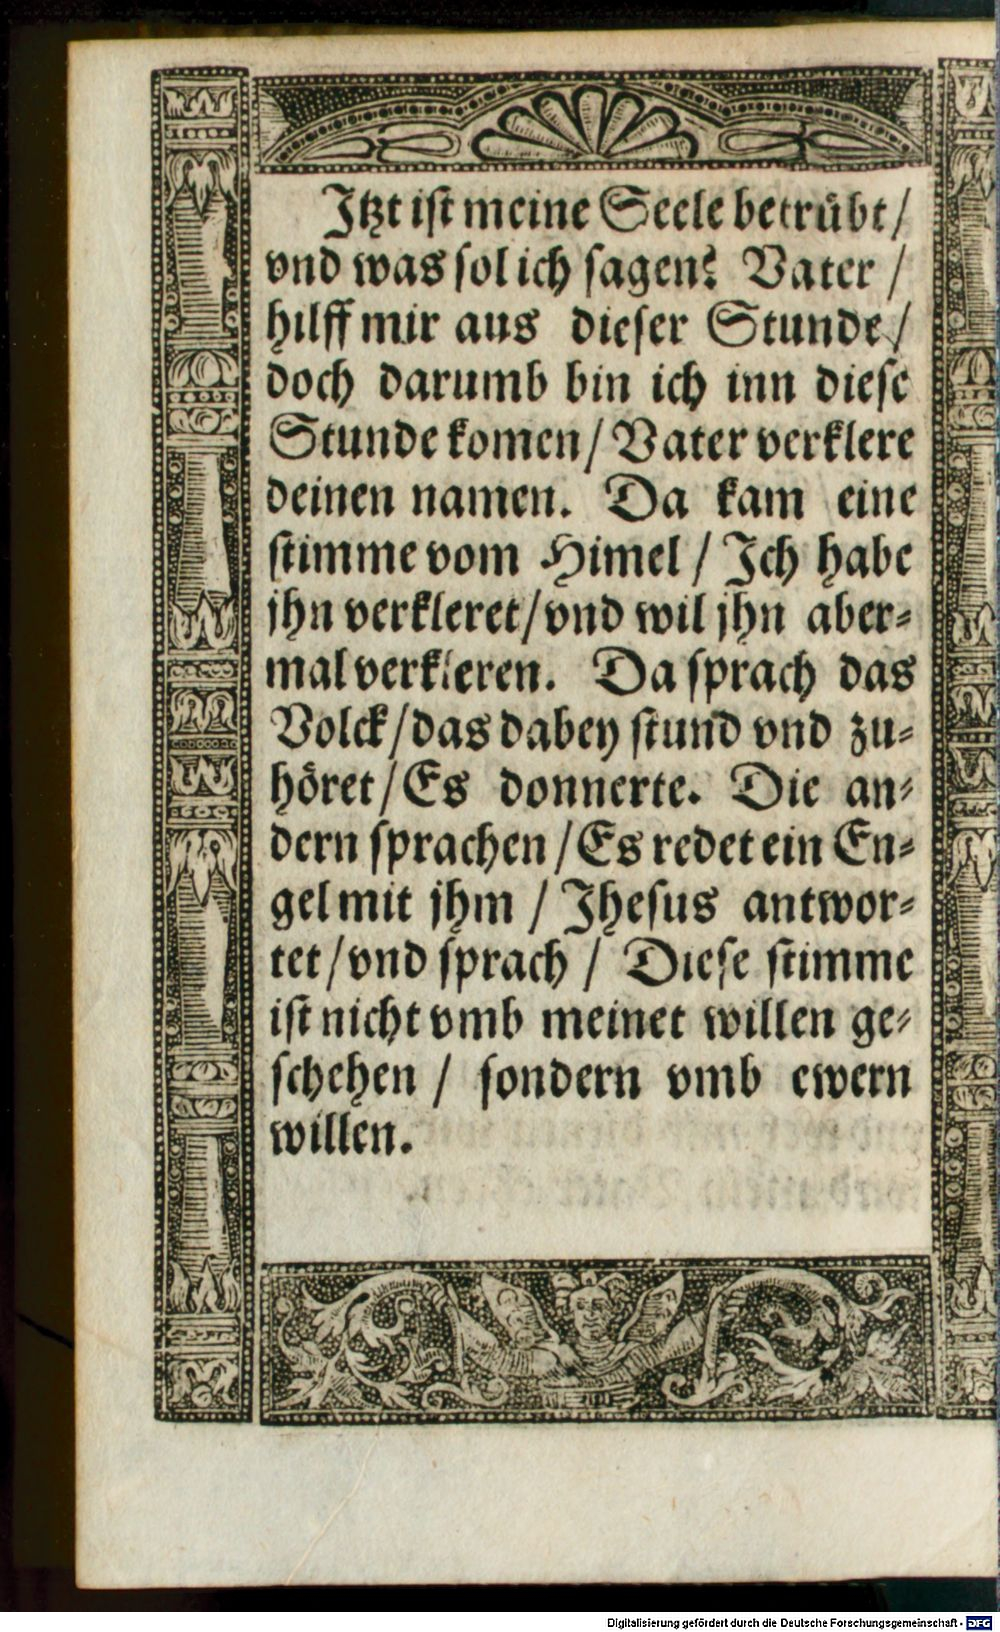 Jtzt ist meine Seele betrübt /
vnd was sol ich sagen? Vater /
hilff mir aus dieser Stunde /
doch darumb bin ich inn diese
Stunde komen / Vater verklere
deinen namen. Da kam eine
stimme vom Himel / Jch habe
jhn verkleret / vnd wil jhn aber-
mal verkleren. Da sprach das
Volck / das dabey stund vnd zu-
höret / Es donnerte. Die an-
dern sprachen / Es redet ein En-
gel mit jhm / Jhesus antwor-
tet / vnd sprach / Diese stimme
ist nicht vmb meinet willen ge-
schehen / sondern vmb ewern
willen.
Digitalisierung gefördert durch die Deutsche Forschungsgemeinschaft - DFG